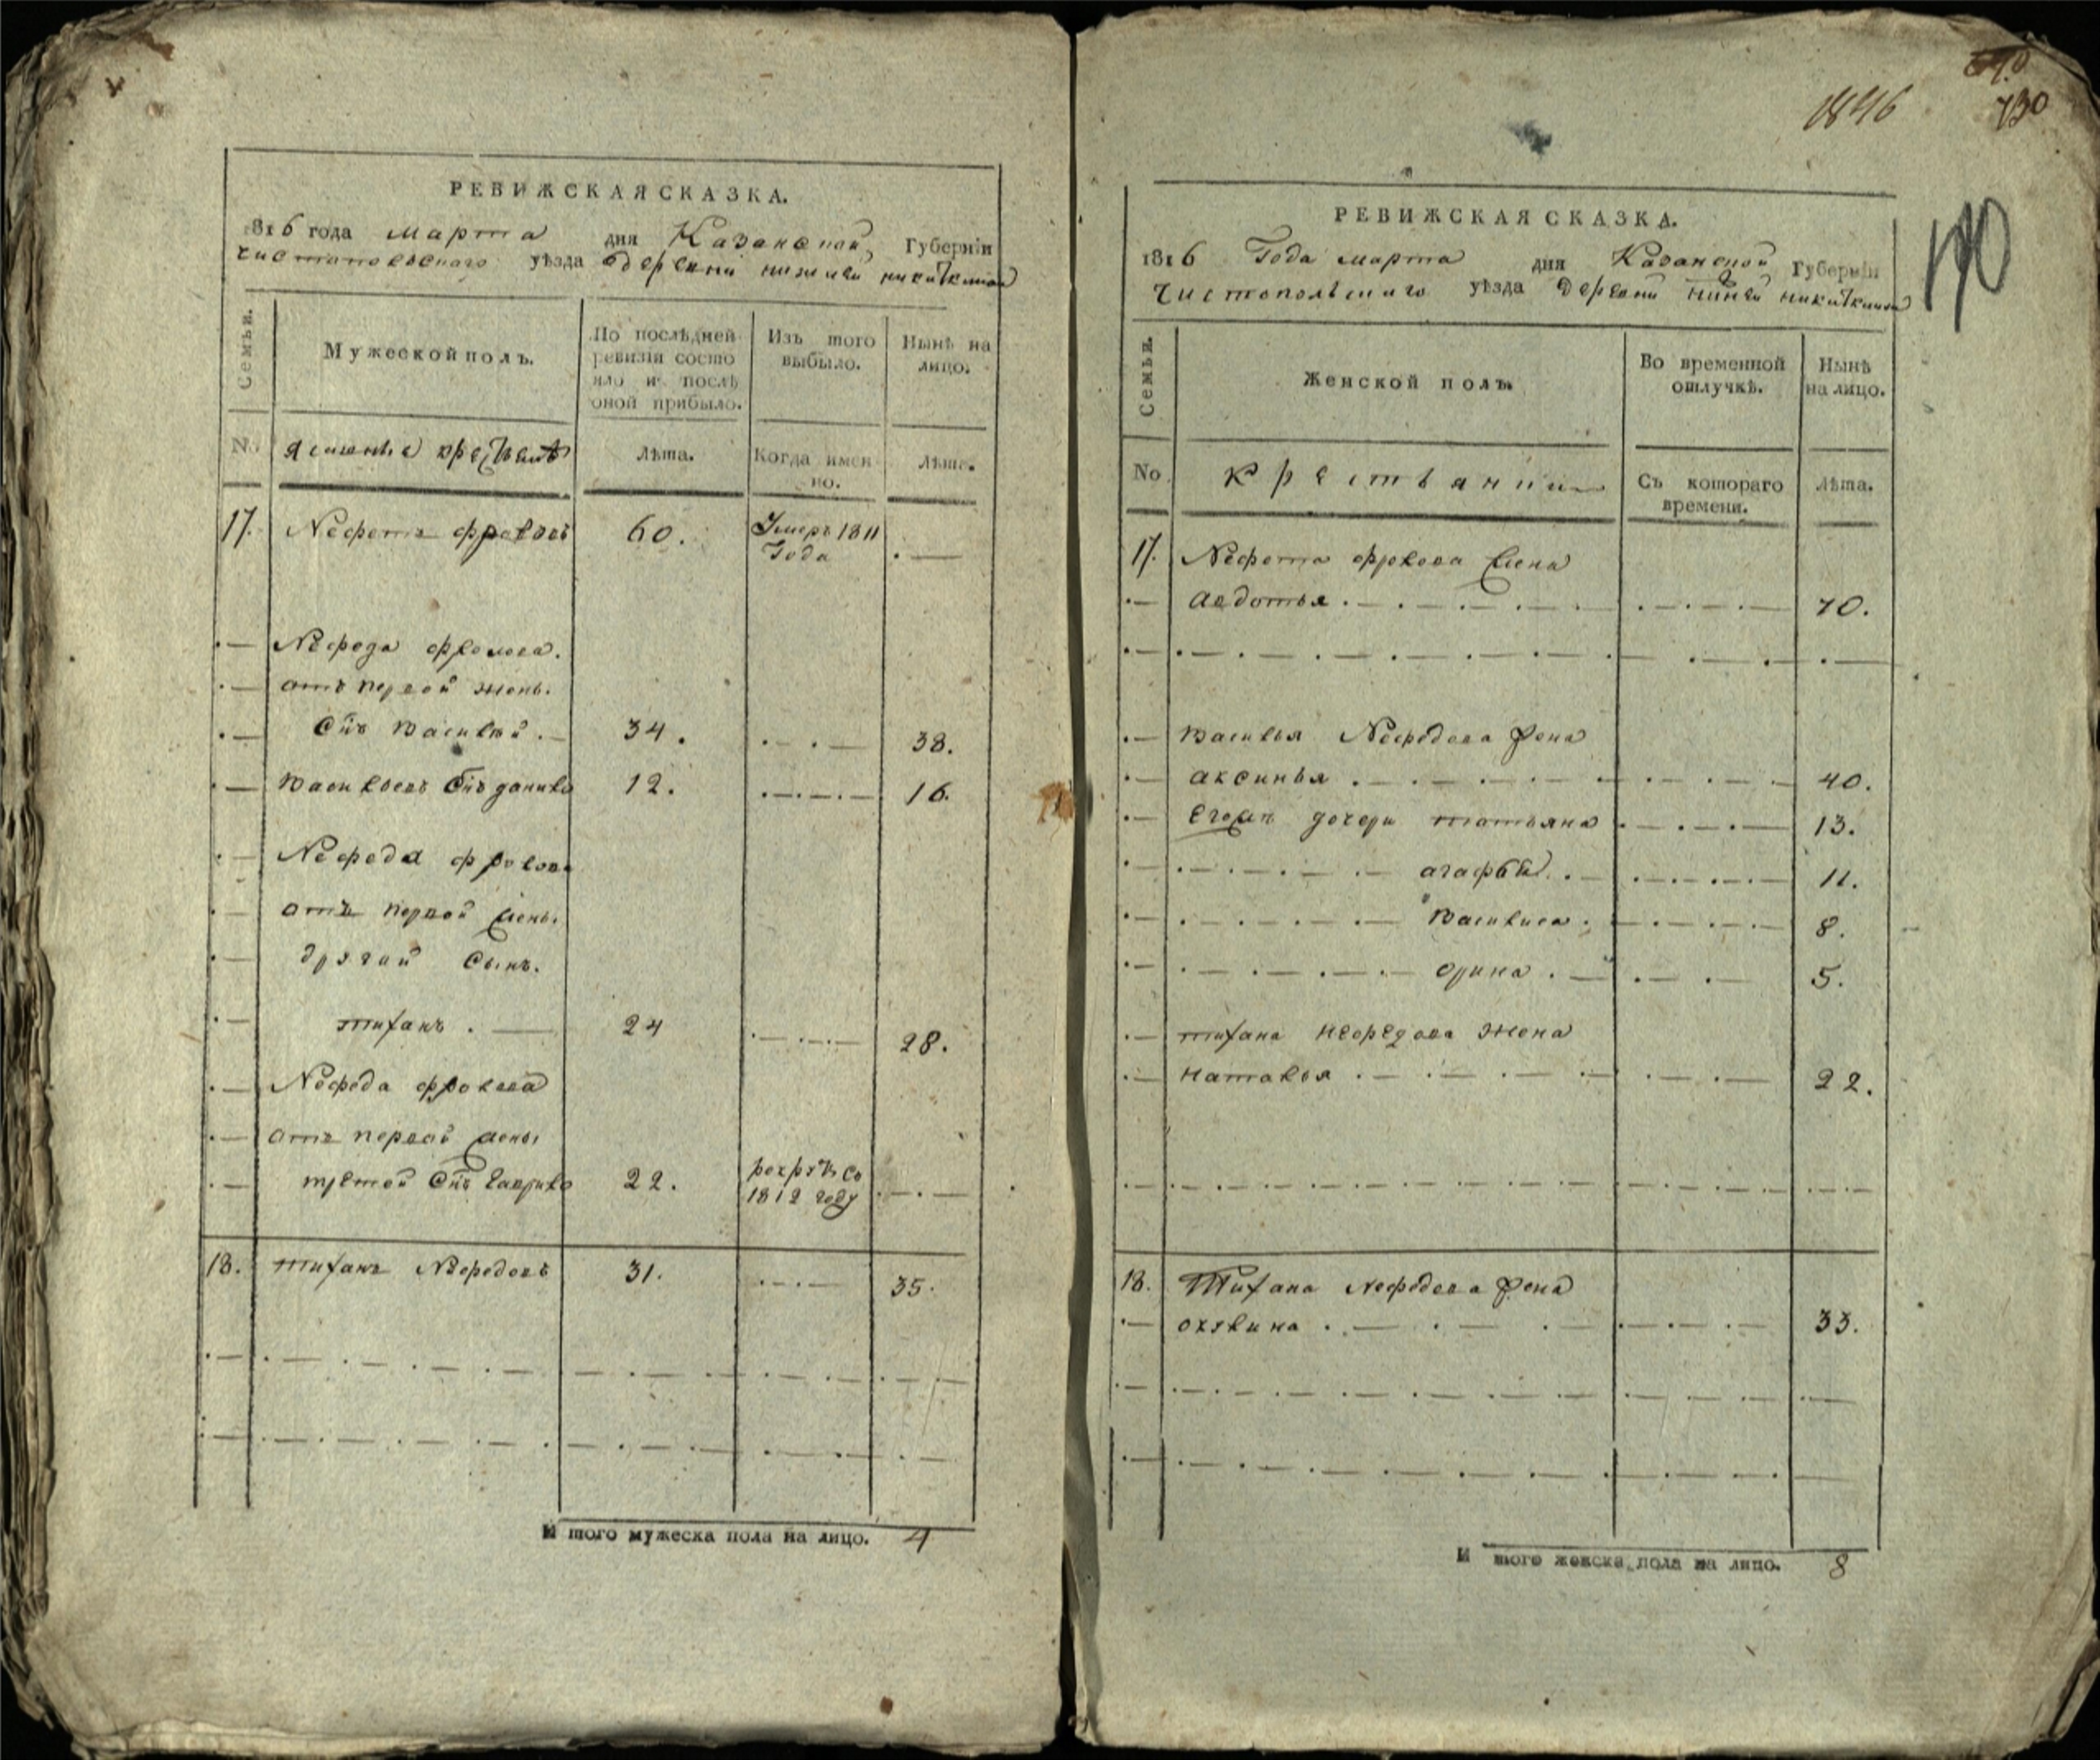 РЕВИЖСКАЯ СКАЗКА.
1816 года марта дня Казанской Губерніи
Чистопольскаго уѣзда деревни нижней никиткиной
Семьи. Мужеской полъ. По послѣдней ревизіи состояло и послѣ оной прибыло. Изъ того выбыло. Нынѣ на лицо.
No Лѣта. Когда именно. Лѣта.
17. Нефетъ фроловъ 60. Умеръ 1811 Года
Нефеда фролова.
отъ первой жены.
Снъ василѣй. 34. 38.
васильевъ Снъ данило 12. 16.
Нефеда фролова
отъ первой жены.
другой Сынъ.
тифанъ. 24 28.
Нефеда фролова
отъ первой жены
третой Снъ гаврило 22. 1812 году
18. тифанъ Нефедовъ 31. 35.
И того мужеска пола на лицо. 4
1846
730
190
РЕВИЖСКАЯ СКАЗКА.
1816 Года марта дня Казанской Губерніи
Чистопольскаго уѣзда деревни никиткиной
Семьи. Женской полъ. Во временной отлучкѣ. Нынѣ на лицо.
No Крестьянки Съ котораго времени. Лѣта.
17. Нефета фролова жена
авдотья. 70.
василья Нефедова жена
аксинья. 40.
Егоже дочери татьяна 13.
агафья. 11.
василиса. 8.
орина. 5.
тифана нефедова жена
наталья 22.
18. Тифана Нефедова жена
окулина. 33.
И того женска пола на лицо. 8